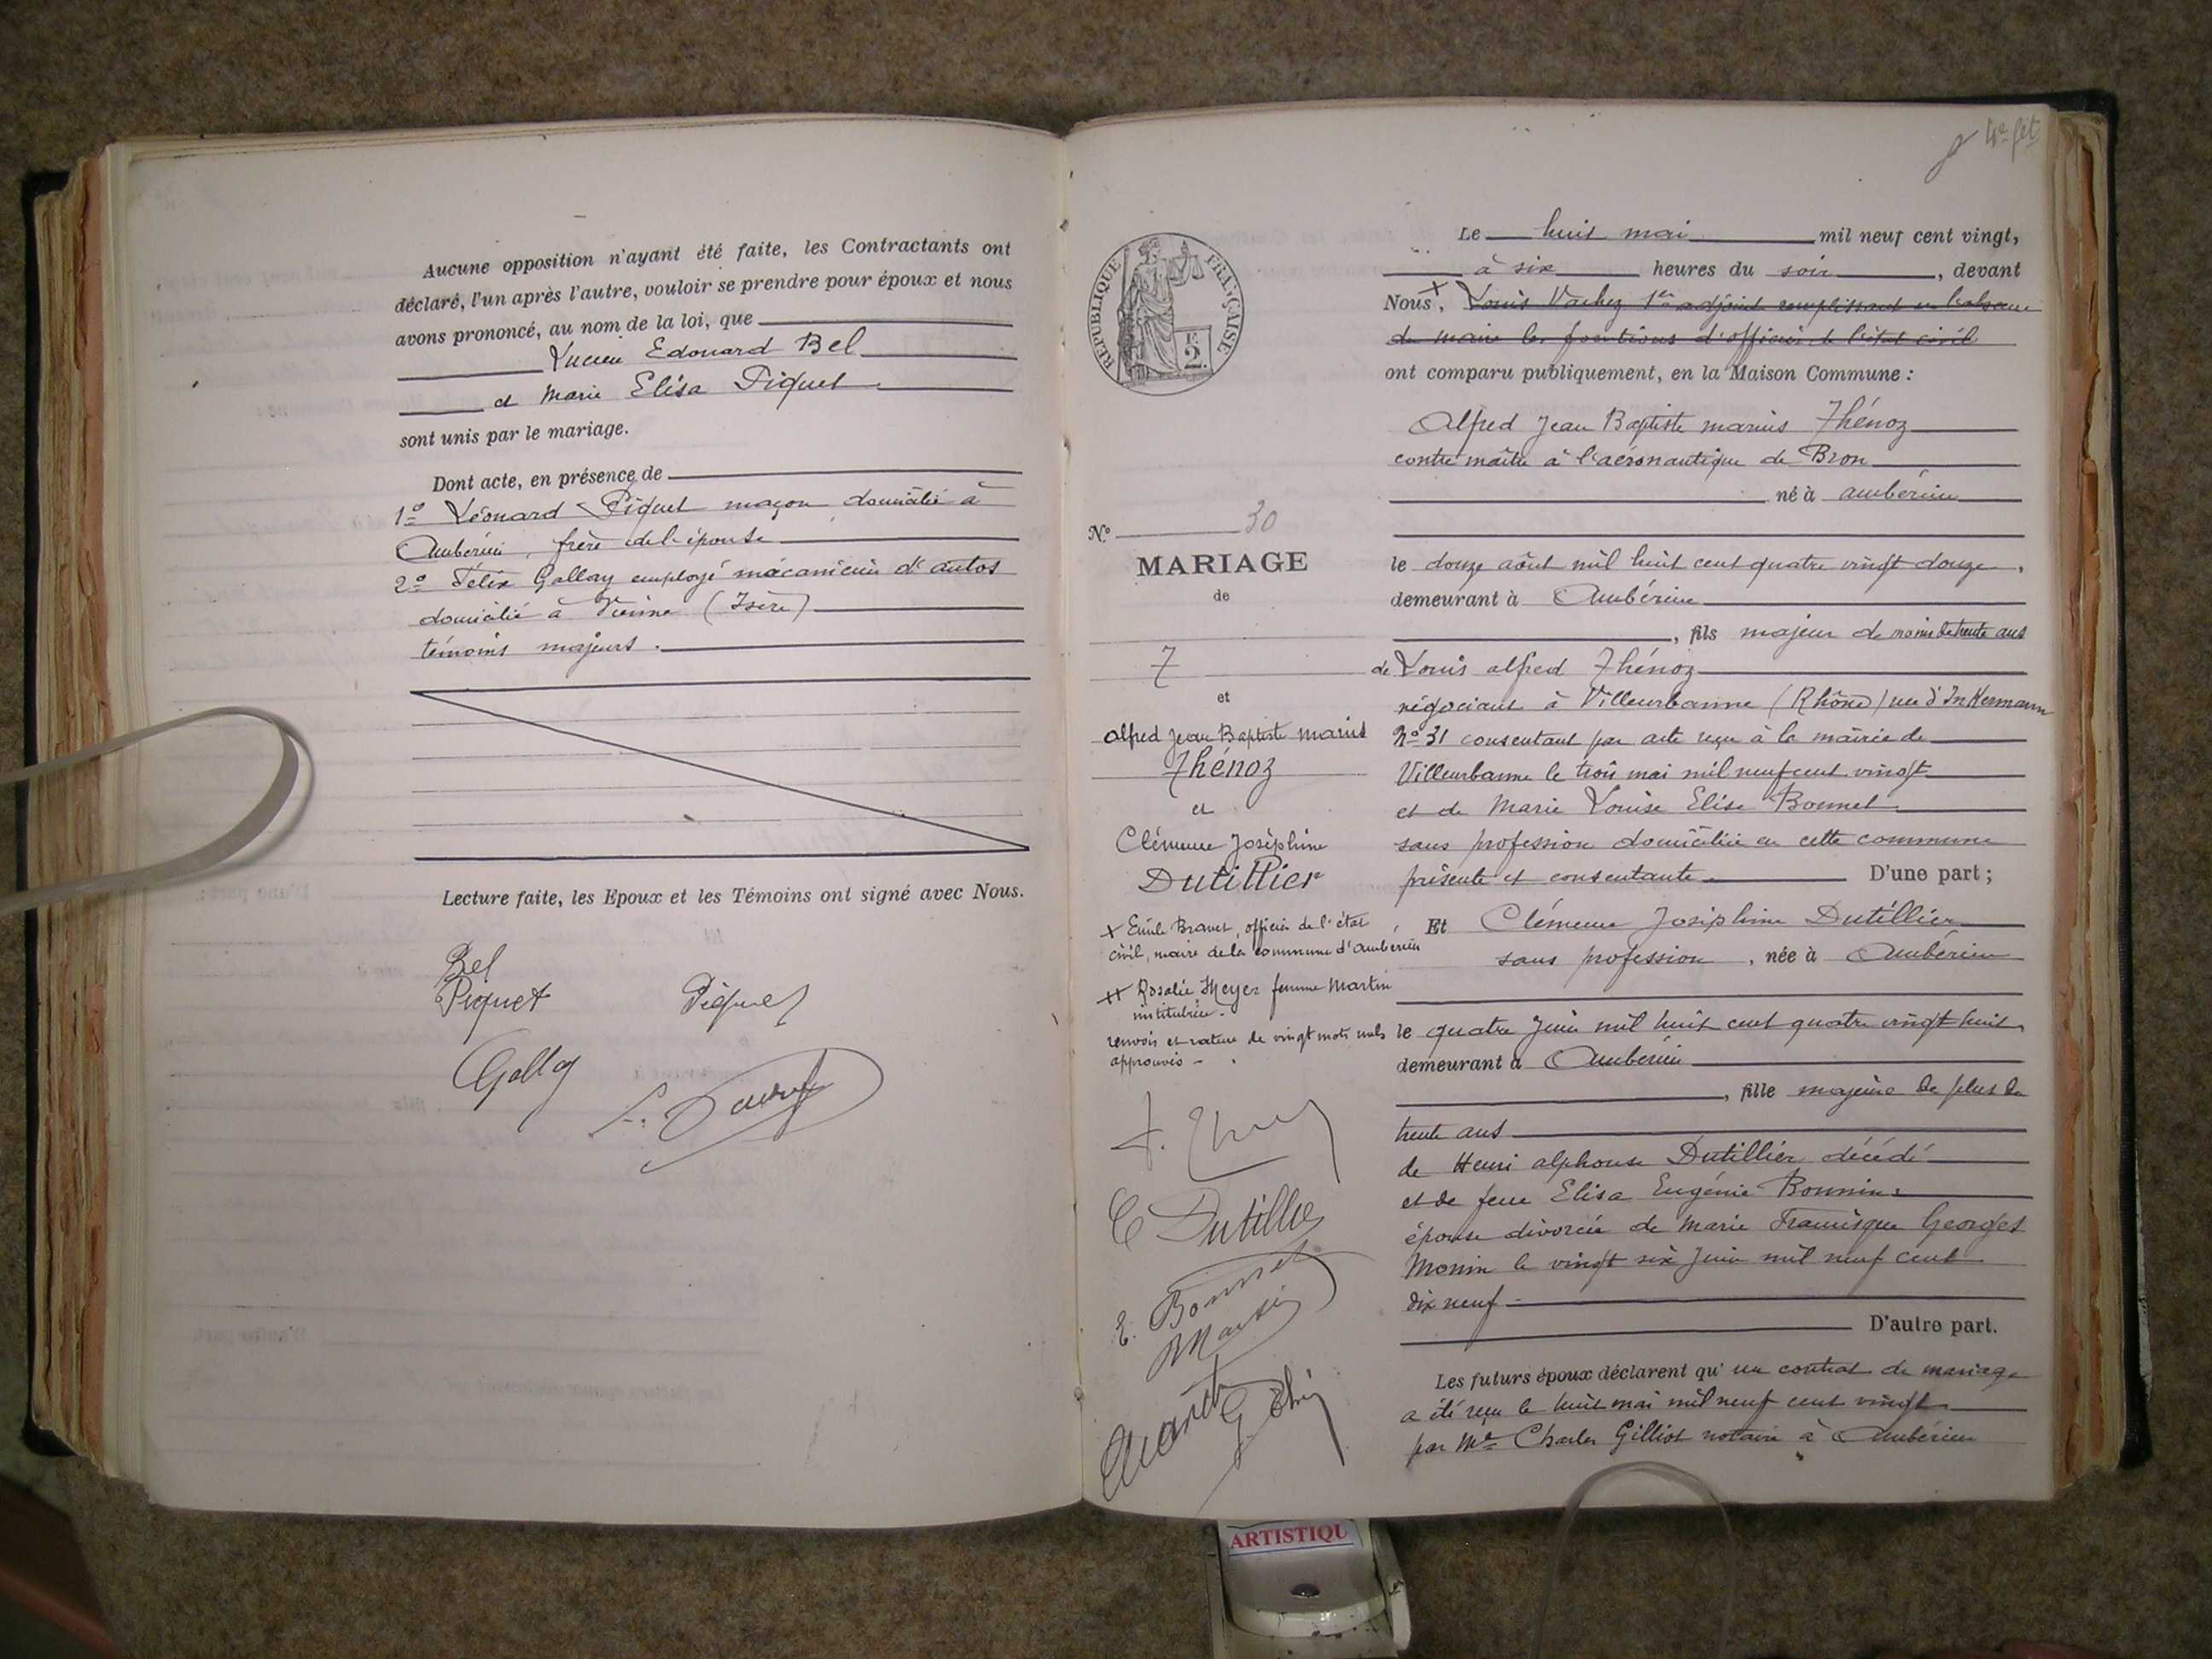 Aucune opposition n'ayant été faite, les Contractants ont
déclaré, l'un après l'autre, vouloir se prendre pour époux et nous
avons prononcé, au nom de la loi, que
Lucien Edouard Bel
et Marie Elisa Piquet
sont unis par le mariage.
Dont acte, en présence de
1º Léonard Piquet maçon domicilié à
Ambérieu, frère de l'épouse
2º Félix Gallay employé mécanicien d'autos
domicilié à Vienne (Isère)
témoins majeurs.
Lecture faite, les Epoux et les Témoins ont signé avec Nous.
Bel
Piquet
Piquet
Gallay
4e fet
REPUBLIQUE FRANÇAISE
F. 2.
Nº 30
MARIAGE
de
7
et
Alfred Jean Baptiste Marius
Thénoz
et
Clémence Joséphine
Dutillier
+ Emile Bravet, officier de l'état
civil, maire de la commune d'Ambérieu
++ Rosalie Meyer femme Martin
institutrice.
renvois et rature de vingt mots nuls
approuvés
C Dutillier
E. Bonnet
Martin
Le huit mai mil neuf cent vingt,
à six heures du soir, devant
Nous, + Louis Vachez 1er adjoint remplissant en l'absence
du maire les fonctions d'officier de l'état civil
ont comparu publiquement, en la Maison Commune :
Alfred Jean Baptiste Marius Thénoz
contre maître à l'aéronautique de Bron
né à Ambérieu
le douze août mil huit cent quatre vingt douze,
demeurant à Ambérieu
, fils majeur de moins de trente ans
de Louis Alfred Thénoz
négociant à Villeurbanne (Rhône) rue d'Inkermann
Nº 31 consentant par acte reçu à la mairie de
Villeurbanne le trois mai mil neuf cent vingt
et de Marie Louise Elise Bonnet
sans profession domiciliée en cette commune
présente et consentante. D'une part ;
Et Clémence Joséphine Dutillier
sans profession, née à Ambérieu
le quatre Juin mil huit cent quatre vingt huit,
demeurant à Ambérieu
, fille majeure de plus de
trente ans
de Henri Alphonse Dutillier décédé
et de feue Elisa Eugénie Bonnin:
épouse divorcée de Marie Francisque Georges
Monin le vingt six Juin mil neuf cent
dix neuf -
D'autre part.
Les futurs époux déclarent qu'un contrat de mariage
a été reçu le huit mai mil neuf cent vingt
par Me Charles Gilliot notaire à Ambérieu
ARTISTIQU